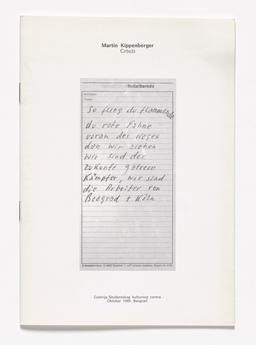 Martin Kippenberger
Crteži
So flieg du flammende
du rote Fahne
voran des Weges
den wir ziehen
wir sind der
Zukunft getreue
Kämpfer, wir sind
die Arbeiter von
Beograd + Köln
Galerija Studentskog kulturnog centra
Oktobar 1989. Beograd